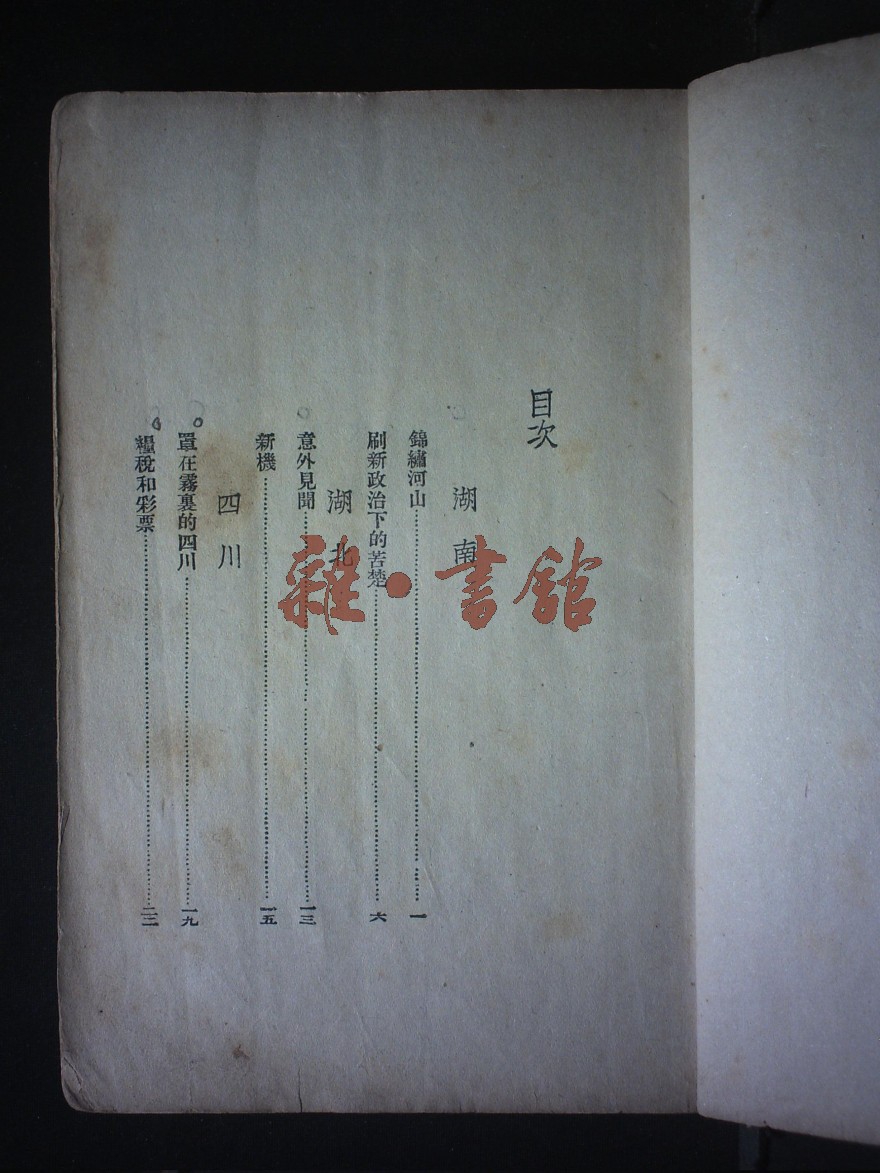 目次
湖南
錦繡河山……………………一
刷新政治下的苦楚……………………六
湖北
意外見聞……………………一三
新機……………………一五
四川
罩在霧裏的四川……………………一九
糧稅和彩票……………………二三
雜·書館